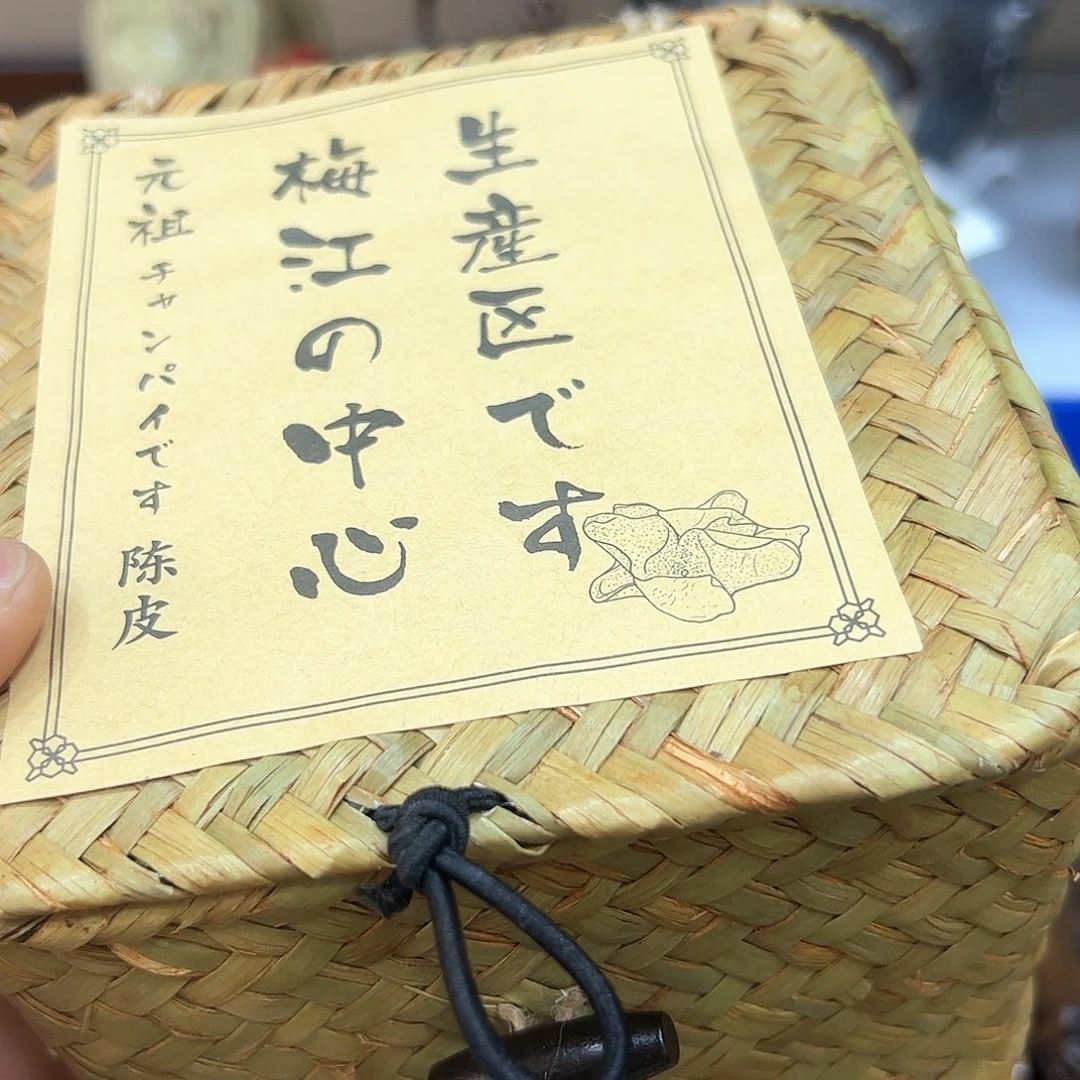 生産区です
梅江の中心
元祖チャンパイです 陈皮